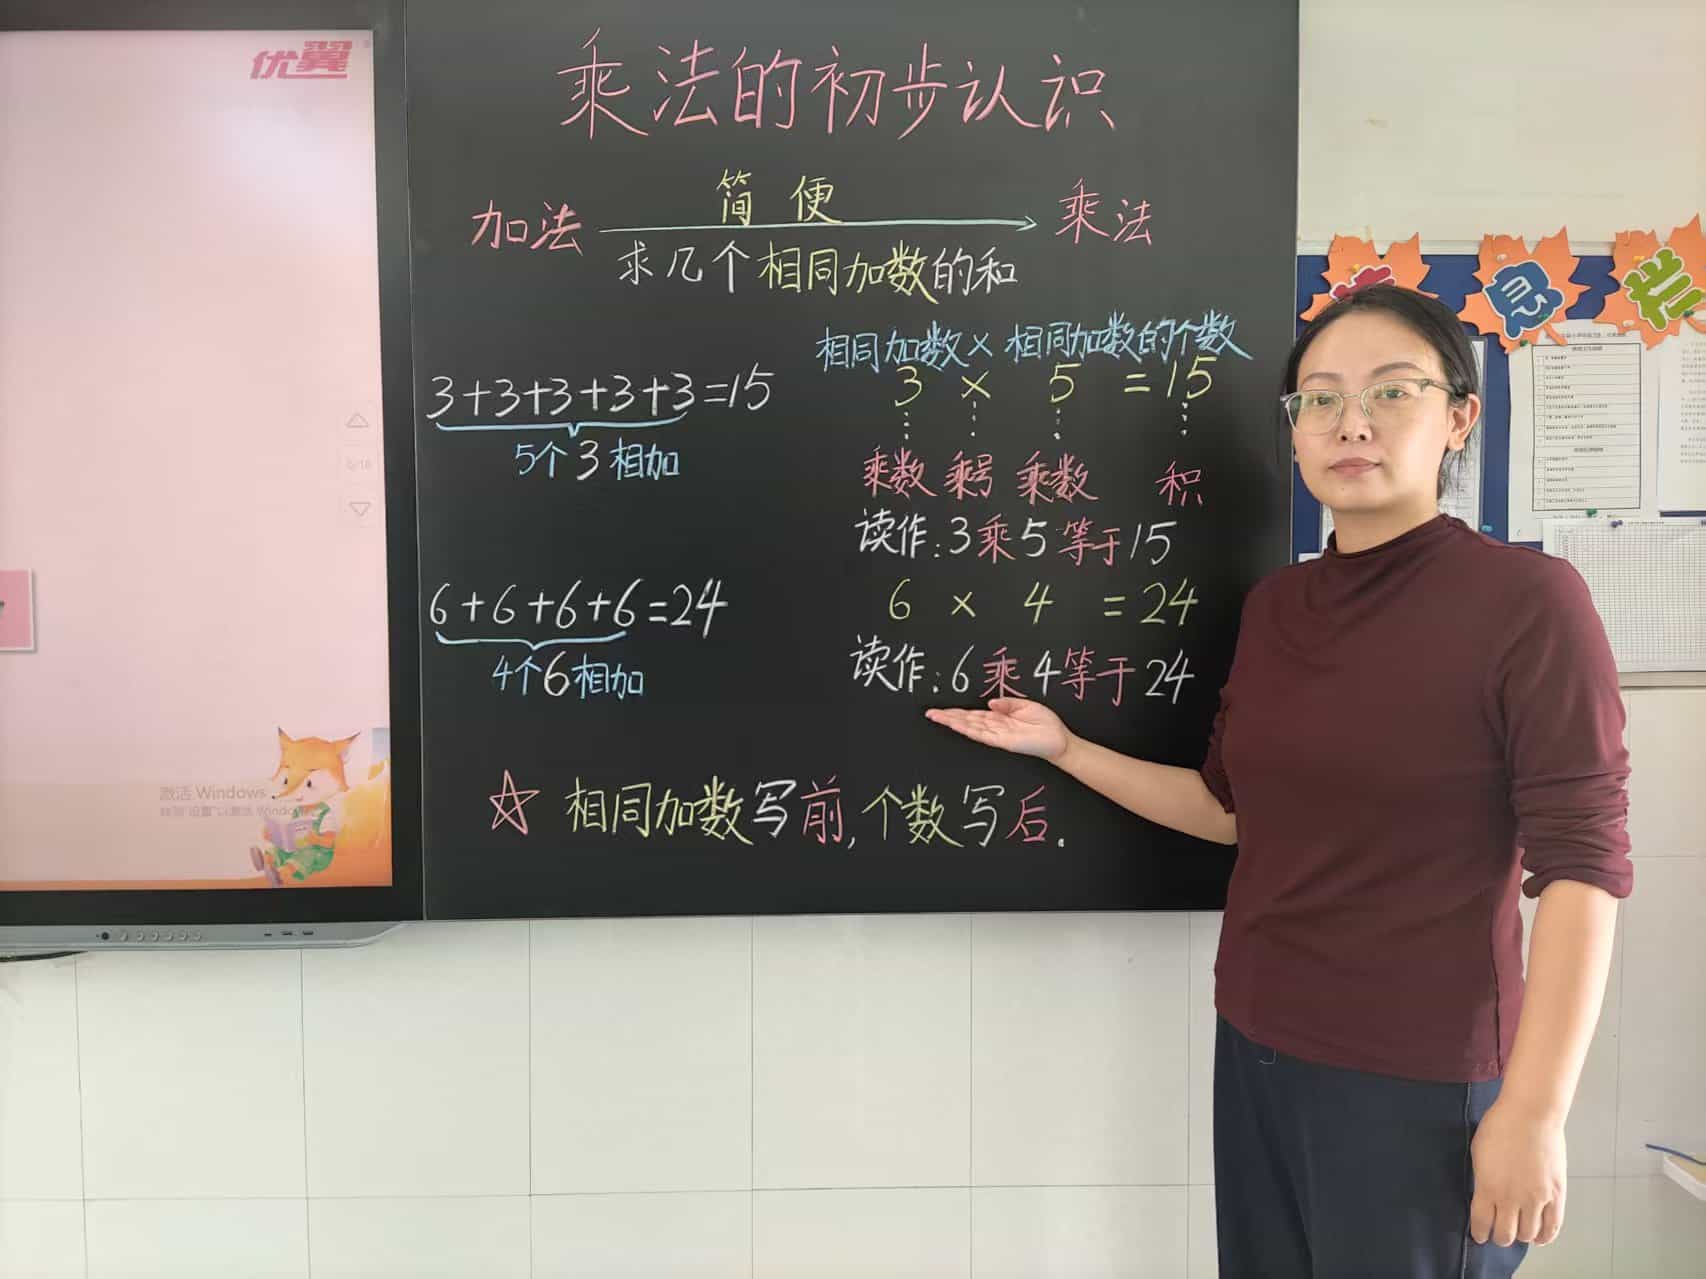 优翼
乘法的初步认识
简便
加法 → 乘法
求几个相同加数的和
相同加数×相同加数的个数
3+3+3+3+3=15
3 × 5 = 15
5个3相加
乘数 乘号 乘数 积
读作:3乘5等于15
6+6+6+6=24
6 × 4 = 24
4个6相加
读作:6乘4等于24
☆ 相同加数写前,个数写后.
激活 Windows
息栏